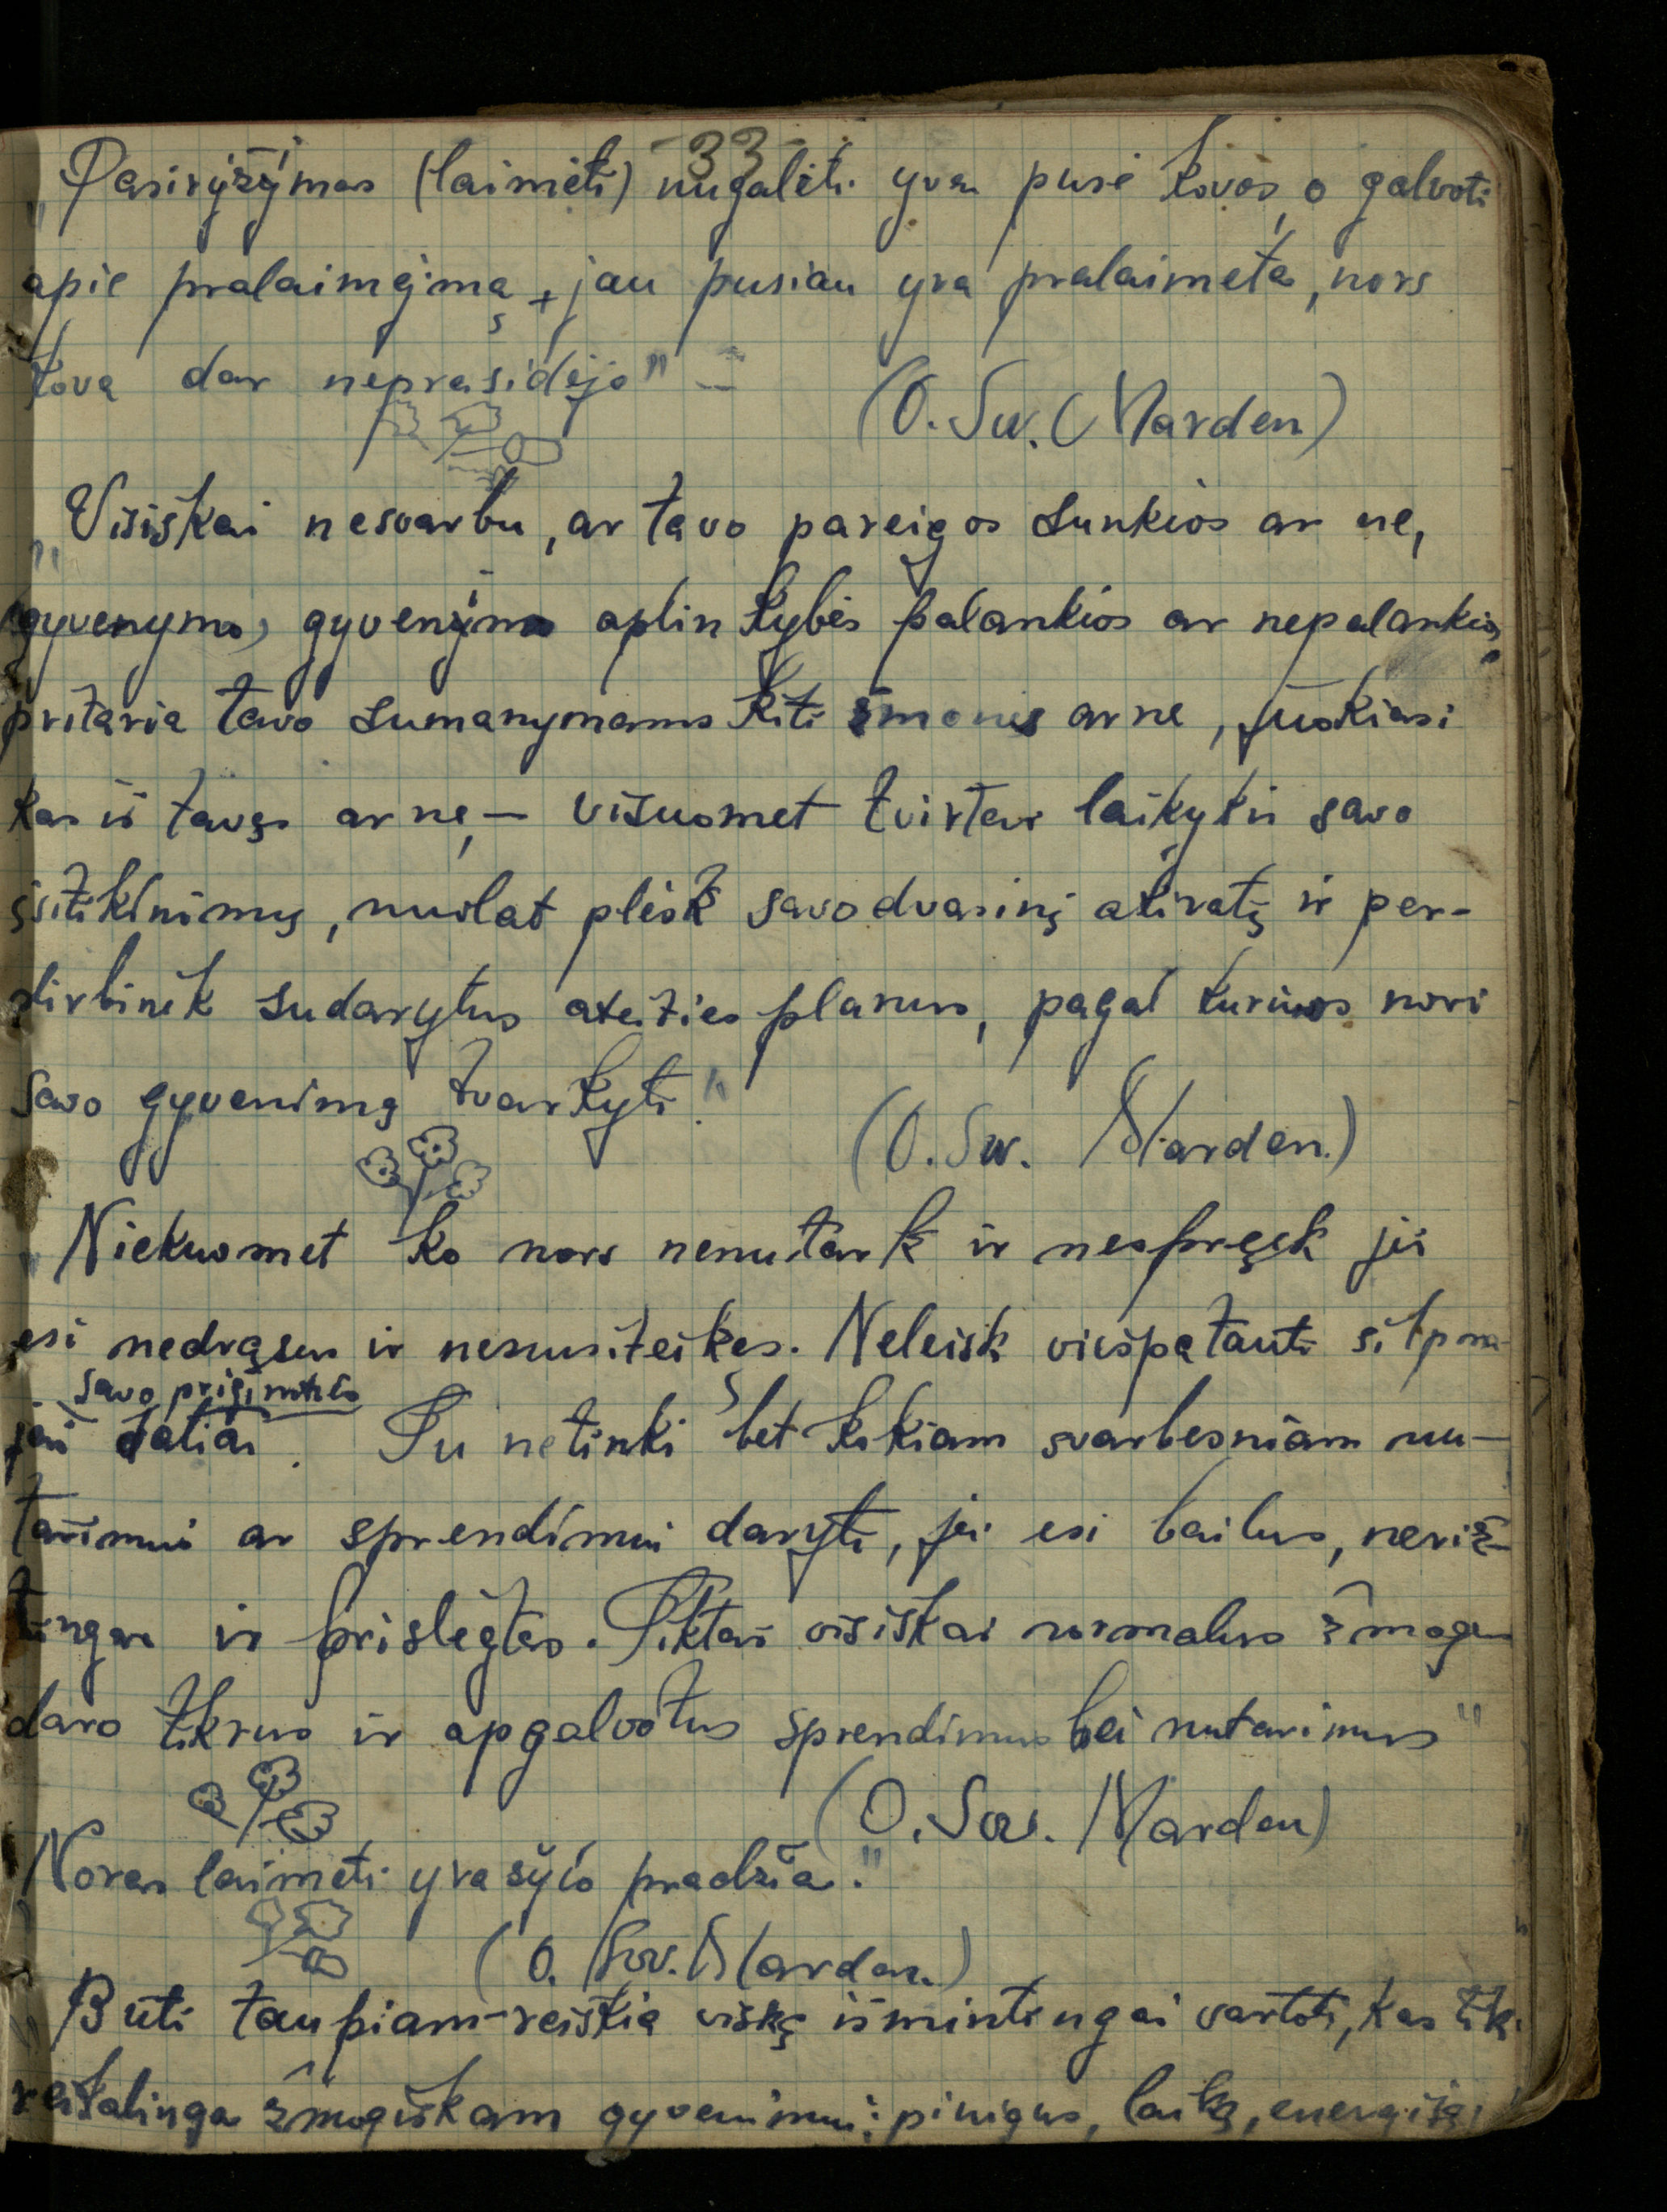 -33-
„Pasiryžymas (laimėti) nugalėti yra pusė kovos, o galvoti
apie pralaimėjmą, jau pusiau yra pralaimėta, nors
kova dar neprasidėjo" –
(O. Sw. Marden)
„Visiškai nesvarbu, ar tavo pareigos sunkios ar ne,
gyvenymo, gyvenymo aplinkybės palankios ar nepalankios,
pritaria tavo sumanymams kiti žmonės ar ne, juokiasi
kas iš tavęs ar ne, – visuomet tvirtai laikykis savo
įsitikinimų, nuolat plėsk savo dvasinį akiratį ir per-
dirbinėk sudarytus ateities planus, pagal kuriuos nori
savo gyvenimą tvarkyti."
(O. Sw. Marden.)
„Niekuomet ko nors nenutark ir nespręsk jei
esi nedrąsus ir nenusiteikęs. Neleisk viešpatauti silpna-
savo prigimties
jai daliai. Tu netinki bet kokiam svarbesniam nu-
tarimui ar sprendimui daryti, jei esi bailus, neriž-
tingas ir prislėgtas. Tiktai visiškai normalus žmogus
daro tikrus ir apgalvotus sprendimus bei nutarimus"
(O. Sw. Marden)
Noras laimėti yra šyio pradžia."
(O. Sw. Marden.)
Būti taupiam – reiškia viską išmintingai vartoti, kas tik
reikalinga žmogiškam gyvenimui: pinigus, laiką, energiją,